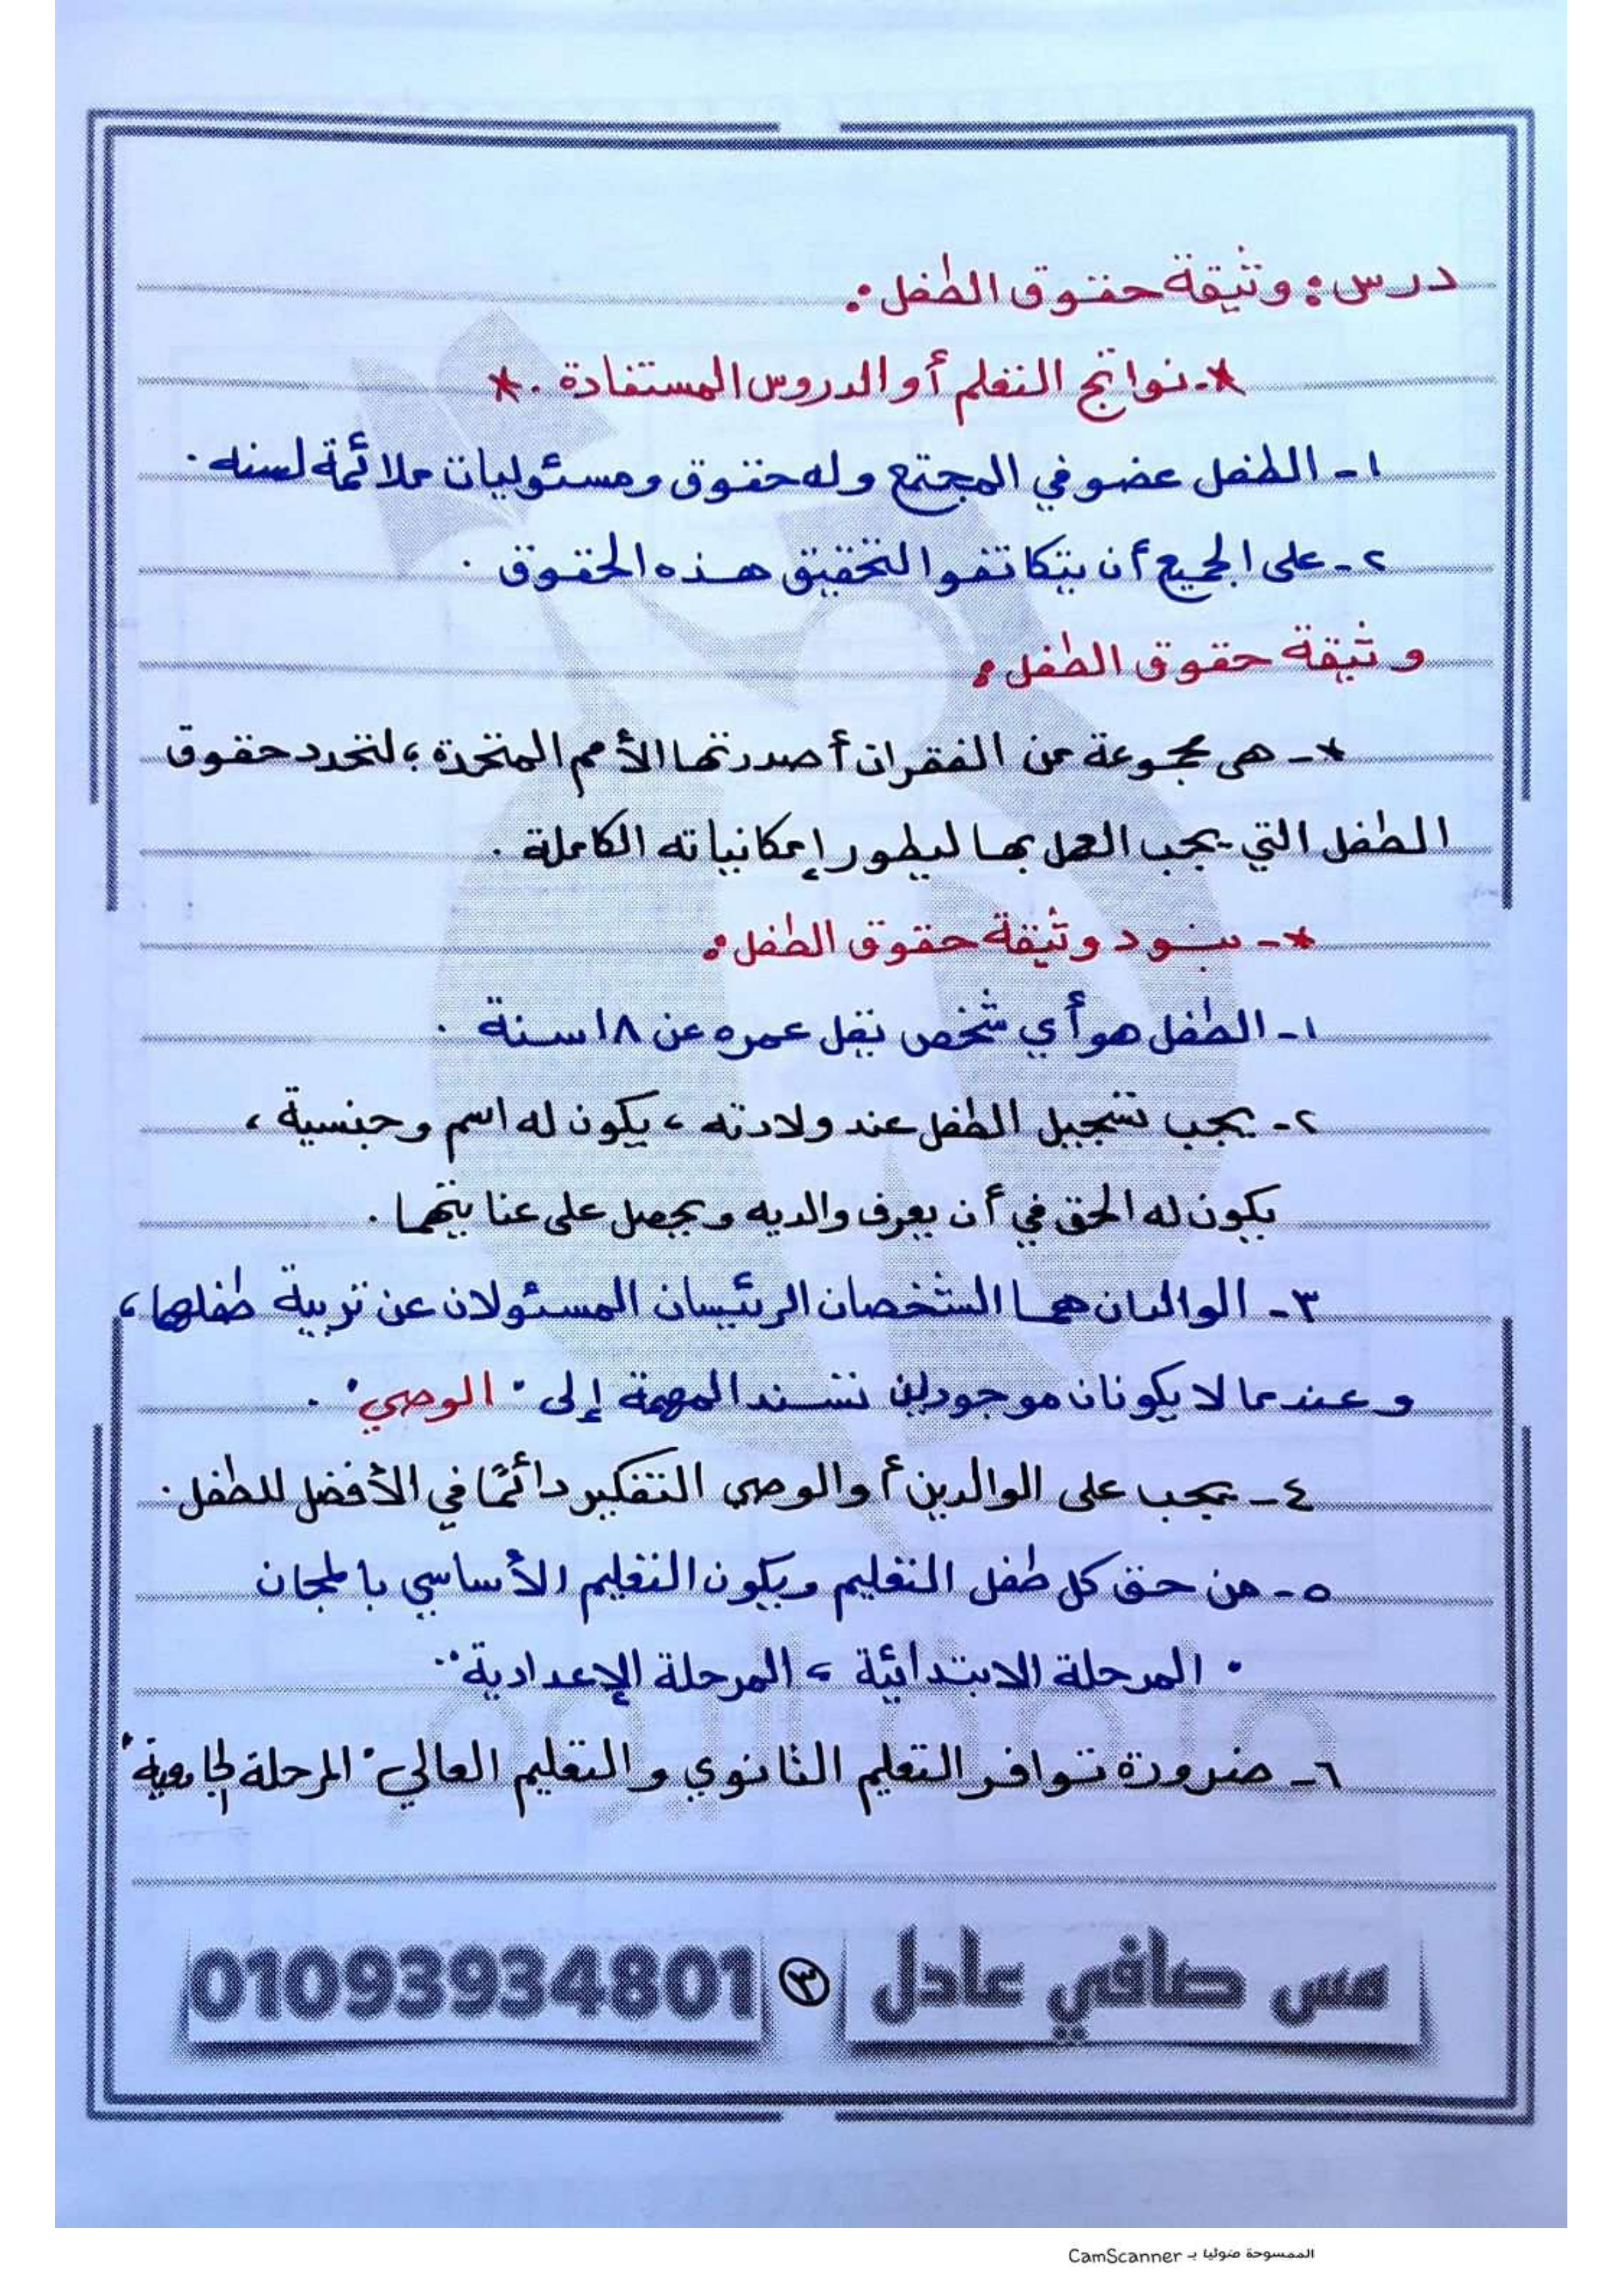 درس: وثيقة حقوق الطفل:
*- نواتج التعلم أو الدروس المستفادة . *
١- الطفل عضو في المجتمع وله حقوق ومسئوليات ملائمة لسنه .
٢- على الجميع أن يتكاتفوا لتحقيق هذه الحقوق .
وثيقة حقوق الطفل:
*- هي مجموعة من الفقرات أصدرتها الأمم المتحدة ؛ لتحدد حقوق
الطفل التي يجب العمل بها ليطور إمكانياته الكاملة .
*- بنود وثيقة حقوق الطفل:
١- الطفل هو أي شخص يقل عمره عن ١٨ سنة .
٢- يجب تسجيل الطفل عند ولادته ، يكون له اسم وجنسية ،
يكون له الحق في أن يعرف والديه ويحصل على عنايتهما .
٣- الوالدان هما الشخصان الرئيسان المسئولان عن تربية طفلهما ،
وعندما لا يكونان موجودين تسند المهمة إلى " الوصي " .
٤- يجب على الوالدين أو الوصي التفكير دائمًا في الأفضل للطفل .
٥- من حق كل طفل التعليم ويكون التعليم الأساسي بالمجان
" المرحلة الابتدائية ، المرحلة الإعدادية "
٦- ضرورة توافر التعليم الثانوي والتعليم العالي " المرحلة الجامعية "
مس صافي عادل ٣ 01093934801
الممسوحة ضوئيا بـ CamScanner